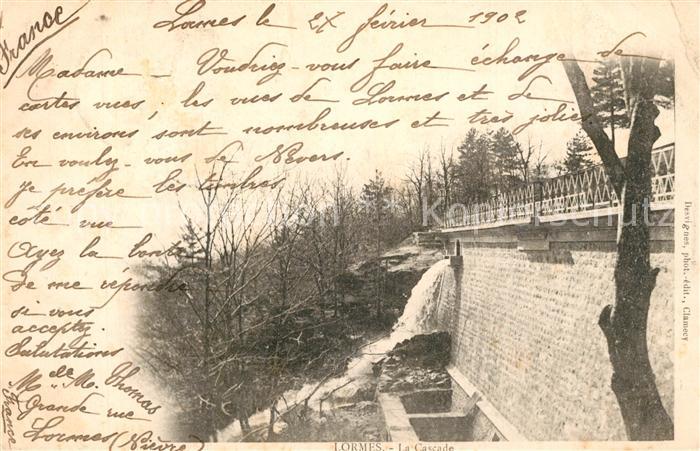 France
Lormes le 2X février 1902
Madame – Voudriez-vous faire échange de
cartes vues, les vues de Lormes et de
ses environs sont nombreuses et très jolies.
En voulez-vous de Nevers.
Je préfère les timbres
côté vue
Ayez la bonté
de me répondre
si vous
acceptez.
Salutations
Melle M. Thomas
Grande rue
Lormes (Nièvre)
France
Desvignes, phot.-édit., Clamecy
LORMES. - La Cascade